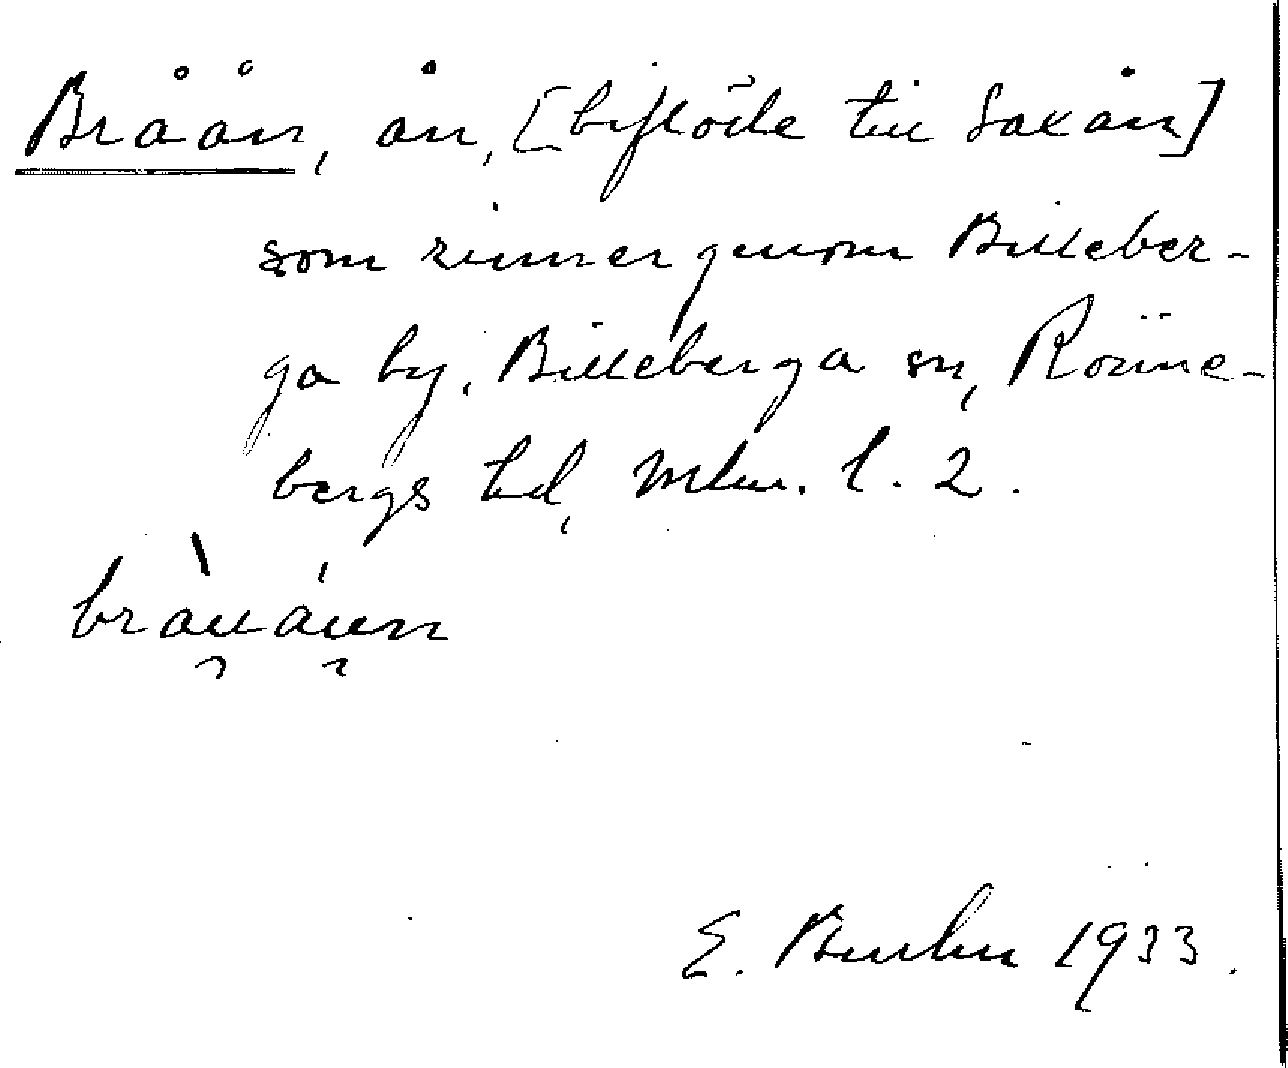 Bråån, ån, [biflöde till Saxån]
som rinner genom Billeber-
ga by. Billeberga sn, Rönne-
bergs hd, Mlm. l. 2.
bràu̯áu̯n
E. 1933.